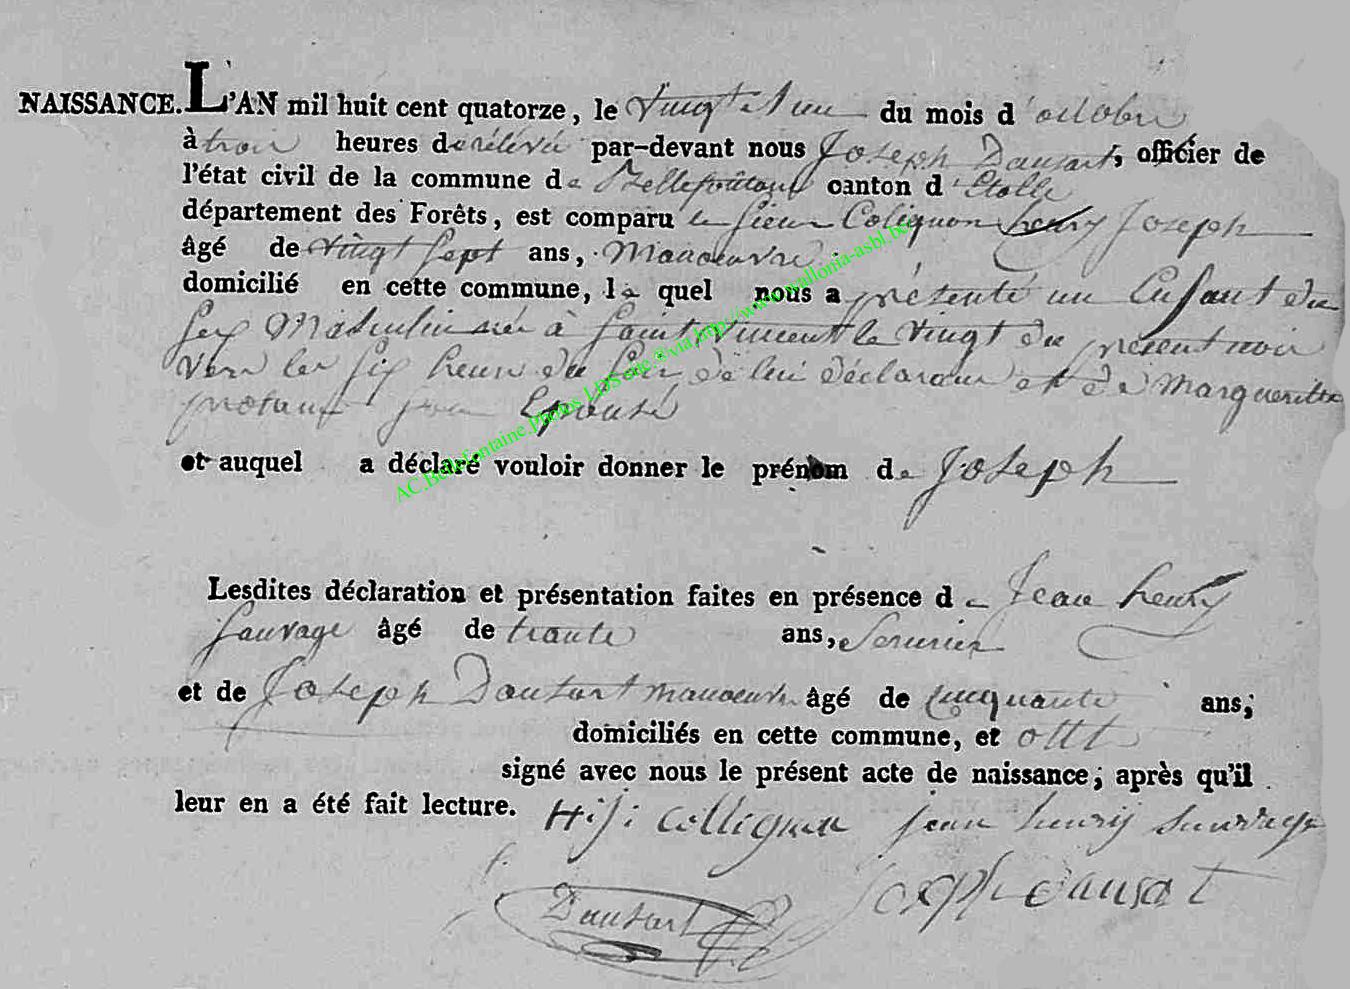 NAISSANCE. L'AN mil huit cent quatorze, le vingt et un du mois d'octobre
à trois heures de rélévé par-devant nous Joseph Dausart, officier de
l'état civil de la commune de Bellefontaine canton d'Etalle
département des Forêts, est comparu le sieur Colignon henry Joseph
âgé de vingt sept ans, Manoeuvre
domicilié en cette commune, le quel nous a présenté un Enfant du
sex Masculin née à Saint Vincent le vingt du présent mois
vers les six heures du soir de lui déclarant et de Margueritte
son Epouse
et auquel a déclaré vouloir donner le prénom de Joseph
Lesdites déclaration et présentation faites en présence de Jean henry
Sauvage âgé de trante ans, Serurier
et de Joseph Dausart manoeuvre âgé de cinquante ans;
domiciliés en cette commune, et ont
signé avec nous le présent acte de naissance; après qu'il
leur en a été fait lecture. H:J: Collignon jean henry sauvage
Joseph dausart
Dausart
AC.Bellefontaine.Photos LDS one.® via http://www.wallonia-asbl.be/